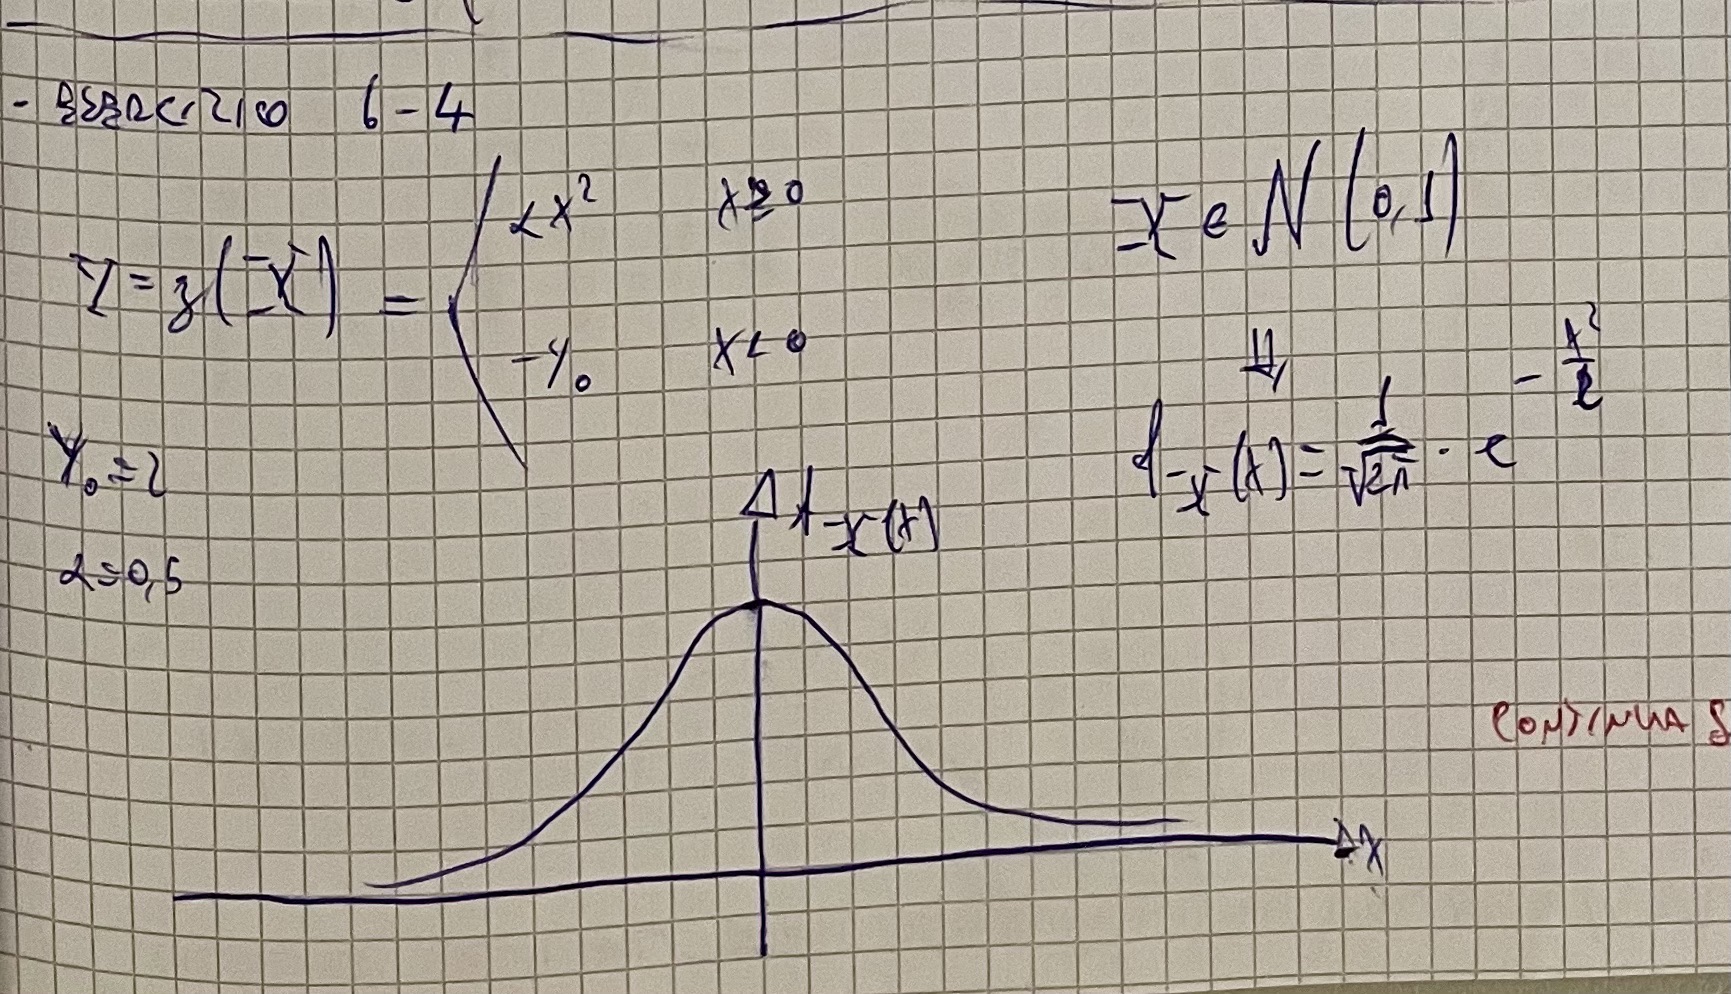 - ESERCIZIO 6-4
Y = g(X) = { αx² x≥0
-y₀ x<0
X ∈ N(0,1)
⇓
y₀ = 2
f_X(x) = 1/√2π · e^(-x²/2)
α=0,5
f_X(x)
CONTINUA
x